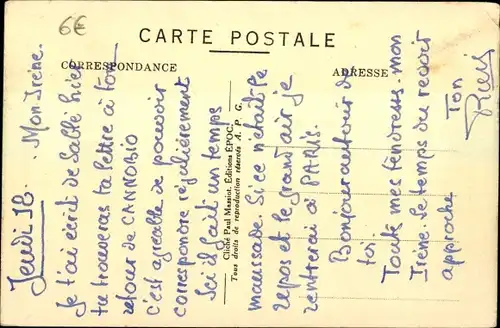 6€
CARTE POSTALE
CORRESPONDANCE
ADRESSE
Jeudi 18.
Mon Irène.
Je t'ai écrit de Sablé hier
tu trouveras ta lettre à ton
retour de CANNOBIO
c'est agréable de pouvoir
correspondre régulièrement
Ici il fait un temps
maussade. Si ce n'était le
repos et le grand air je
rentrerai à PARIS.
Bonjour autour de
toi
Toute mes tendresses mon
Irène. Le temps du revoir
approche
Ton
Cliché Paul Massiot. Éditions ÉPOC.
Tous droits de reproduction réservés A. P. G.